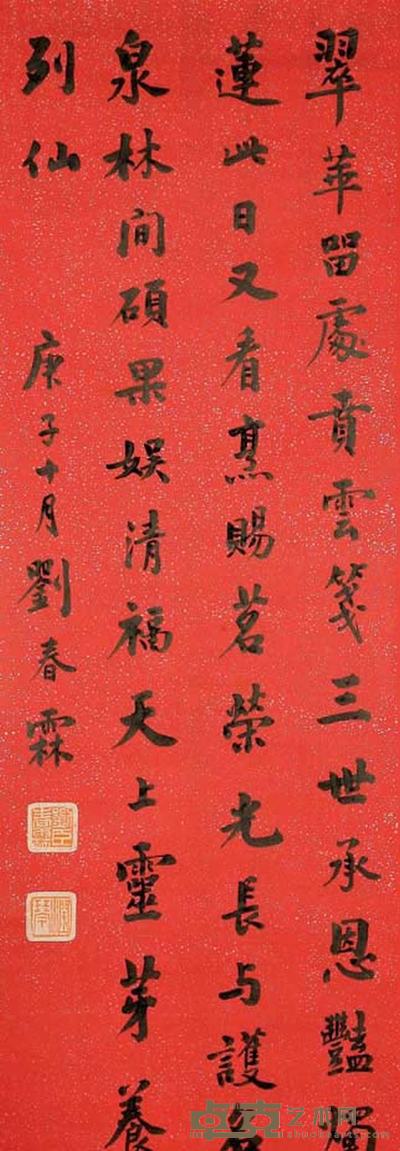 翠華留處賁雲箋三世承恩豔燭
蓮此日又看烹賜茗榮光長与護
泉林間碩果娛清福天上靈芽養
列仙
庚子十月劉春霖
艺术网